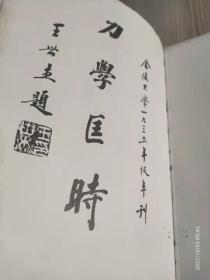 金陵大學一九三三年級年刊
力學匡時
王世杰題
2021/10/09 09:40